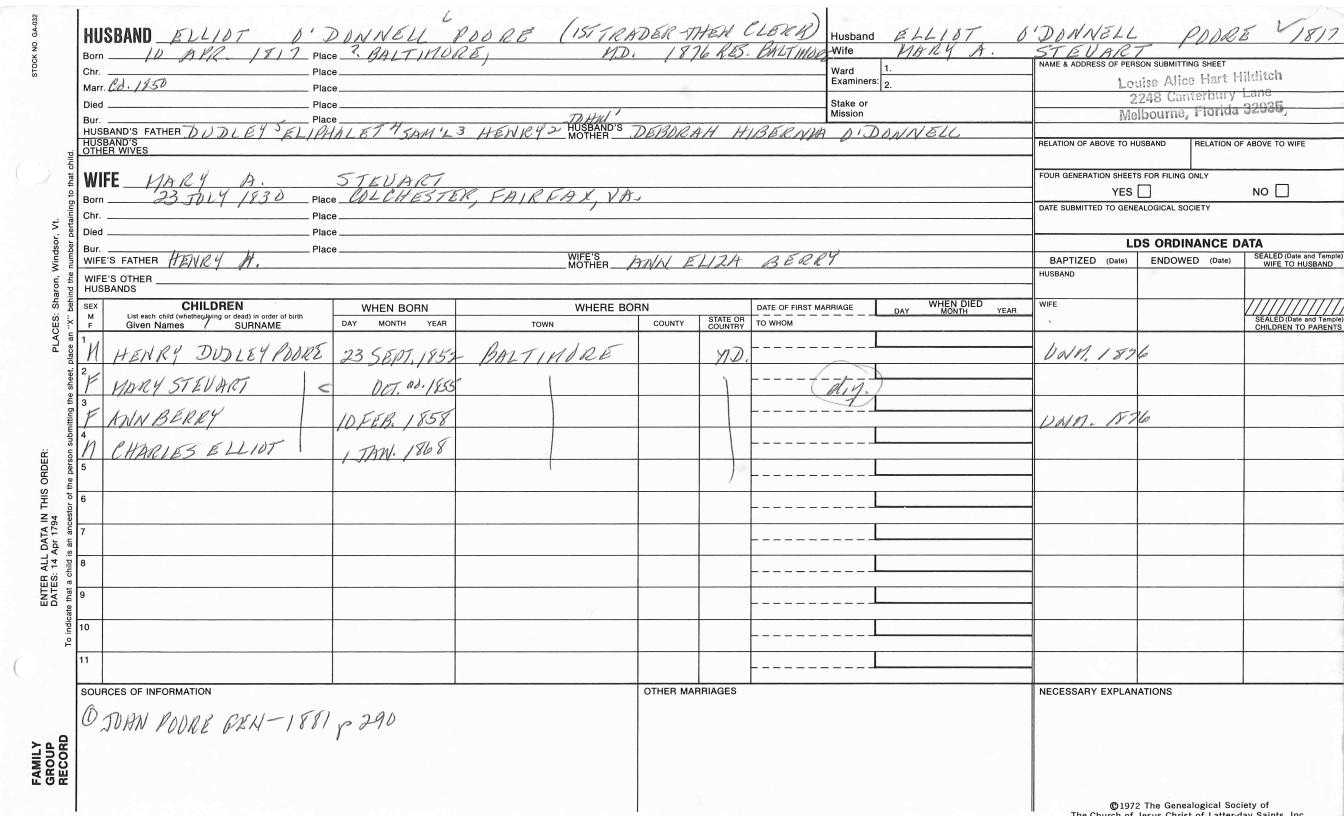 STOCK NO. GA-032
HUSBAND ELLIOT O'DONNELL 6 POORE (1ST TRADER THEN CLERK)
Born 10 APR. 1817 Place ? BALTIMORE, MD. 1876 RES. BALTIMORE
Chr. Place
Marr. Cd. 1850 Place
Died Place
Bur. Place
HUSBAND'S FATHER DUDLEY 5 ELIPHALET 4 SAM'L 3 HENRY 2 JOHN 1 HUSBAND'S MOTHER DEBORAH HIBERNIA O'DONNELL
HUSBAND'S OTHER WIVES
WIFE MARY A. STEUART
Born 23 JULY 1830 Place COLCHESTER, FAIRFAX, VA.
Chr. Place
Died Place
Bur. Place
WIFE'S FATHER HENRY H. WIFE'S MOTHER ANN ELIZA BERRY
WIFE'S OTHER HUSBANDS
Husband ELLIOT O'DONNELL POORE ✓ 1817
Wife MARY A. STEUART
Ward Examiners: 1.
2.
Stake or Mission
NAME & ADDRESS OF PERSON SUBMITTING SHEET
Louise Alice Hart Hilditch
2248 Canterbury Lane
Melbourne, Florida 32935,
RELATION OF ABOVE TO HUSBAND RELATION OF ABOVE TO WIFE
FOUR GENERATION SHEETS FOR FILING ONLY
YES NO
DATE SUBMITTED TO GENEALOGICAL SOCIETY
LDS ORDINANCE DATA
BAPTIZED (Date) ENDOWED (Date) SEALED (Date and Temple) WIFE TO HUSBAND
HUSBAND
WIFE
SEALED (Date and Temple) CHILDREN TO PARENTS
SEX M F CHILDREN WHEN BORN WHERE BORN DATE OF FIRST MARRIAGE WHEN DIED
List each child (whether living or dead) in order of birth
Given Names SURNAME DAY MONTH YEAR TOWN COUNTY STATE OR COUNTRY TO WHOM DAY MONTH YEAR
1 M HENRY DUDLEY POORE 23 SEPT. 1852 BALTIMORE MD. UNM. 1876
2 F MARY STEUART OCT. 1855 d.y.
3 F ANN BERRY 10 FEB. 1858 UNM. 1876
4 M CHARLES ELLIOT 1 JAN. 1868
5
6
7
8
9
10
11
SOURCES OF INFORMATION
① JOHN POORE GEN-1881 p 290
OTHER MARRIAGES
NECESSARY EXPLANATIONS
©1972 The Genealogical Society of
The Church of Jesus Christ of Latter-day Saints, Inc.
PLACES: Sharon, Windsor, Vt.
ENTER ALL DATA IN THIS ORDER:
DATES: 14 Apr 1794
To indicate that a child is an ancestor of the person submitting the sheet, place an "X" behind the number pertaining to that child.
FAMILY
GROUP
RECORD